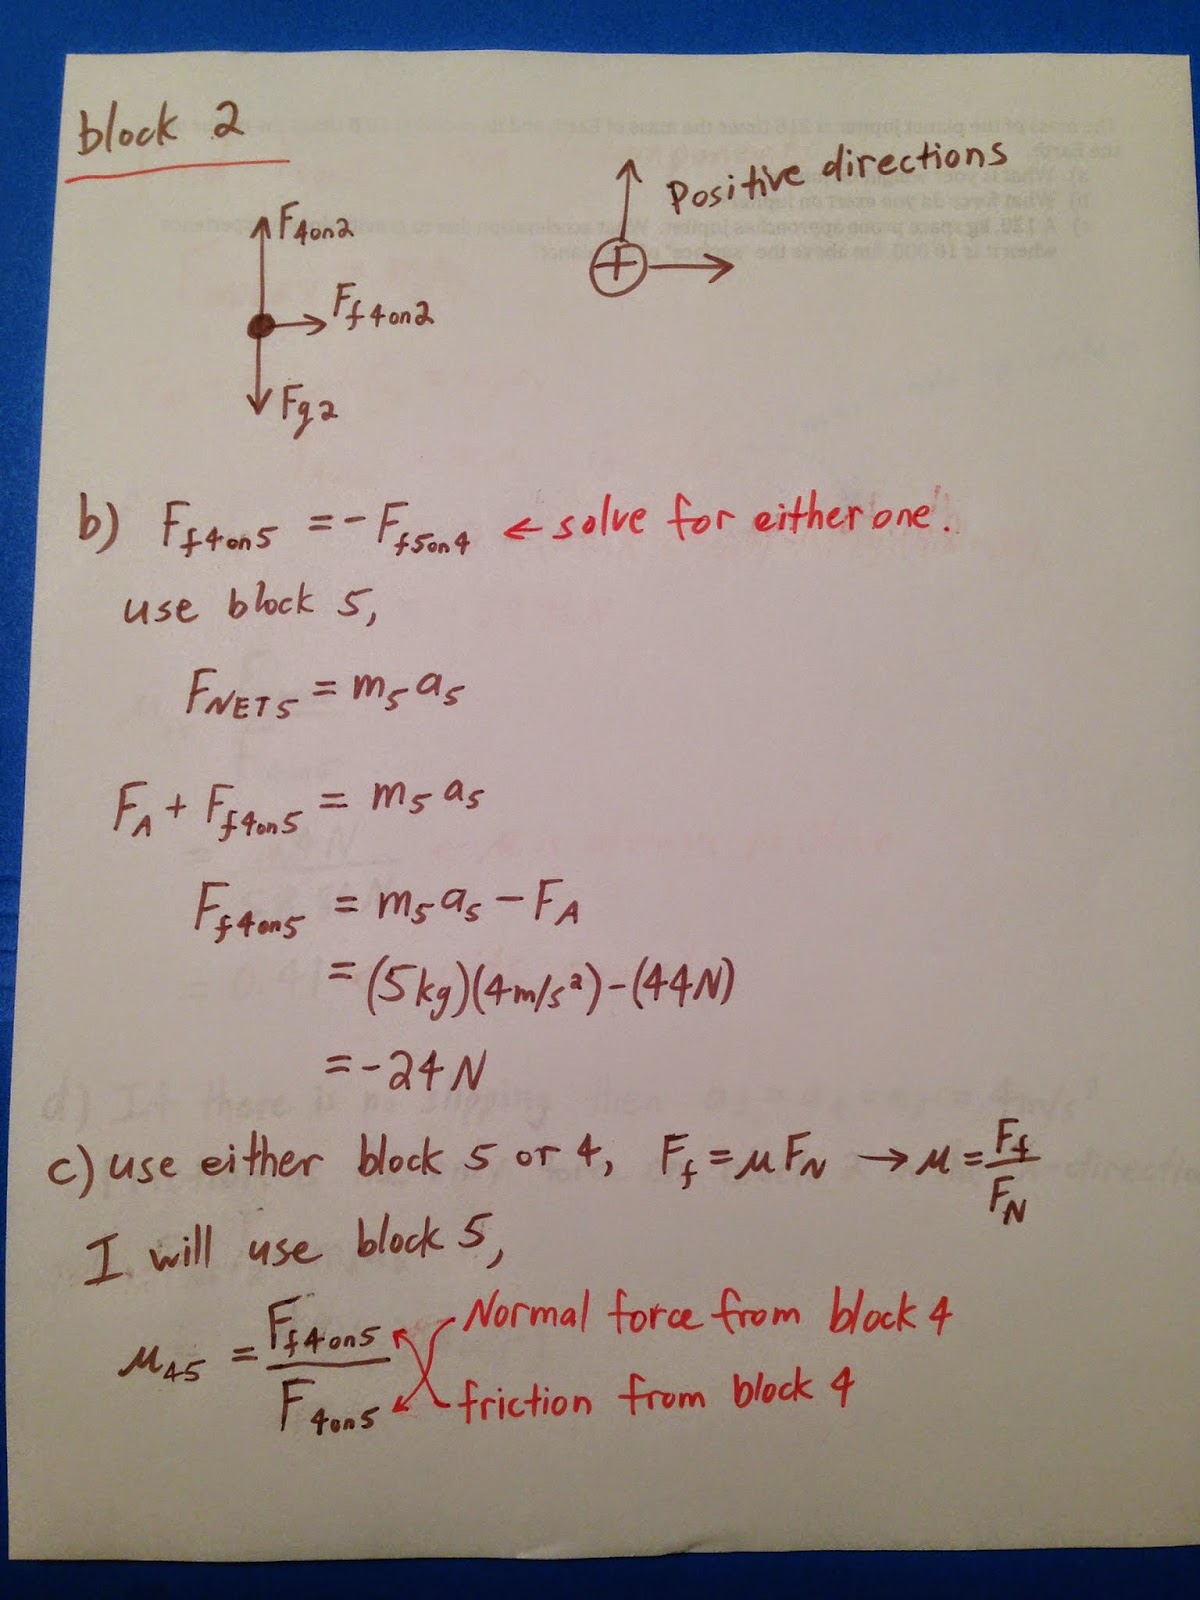 block 2
Positive directions
+
F4on2
Ff4on2
Fg2
b) Ff4on5 = -Ff5on4 ← solve for either one.
use block 5,
FNET5 = m5 a5
FA + Ff4on5 = m5 a5
Ff4on5 = m5 a5 - FA
= (5kg)(4m/s²)-(44N)
= -24N
c) use either block 5 or 4, Ff = μ FN → μ = Ff/FN
I will use block 5,
μ45 = Ff4on5/F4on5
Normal force from block 4
friction from block 4